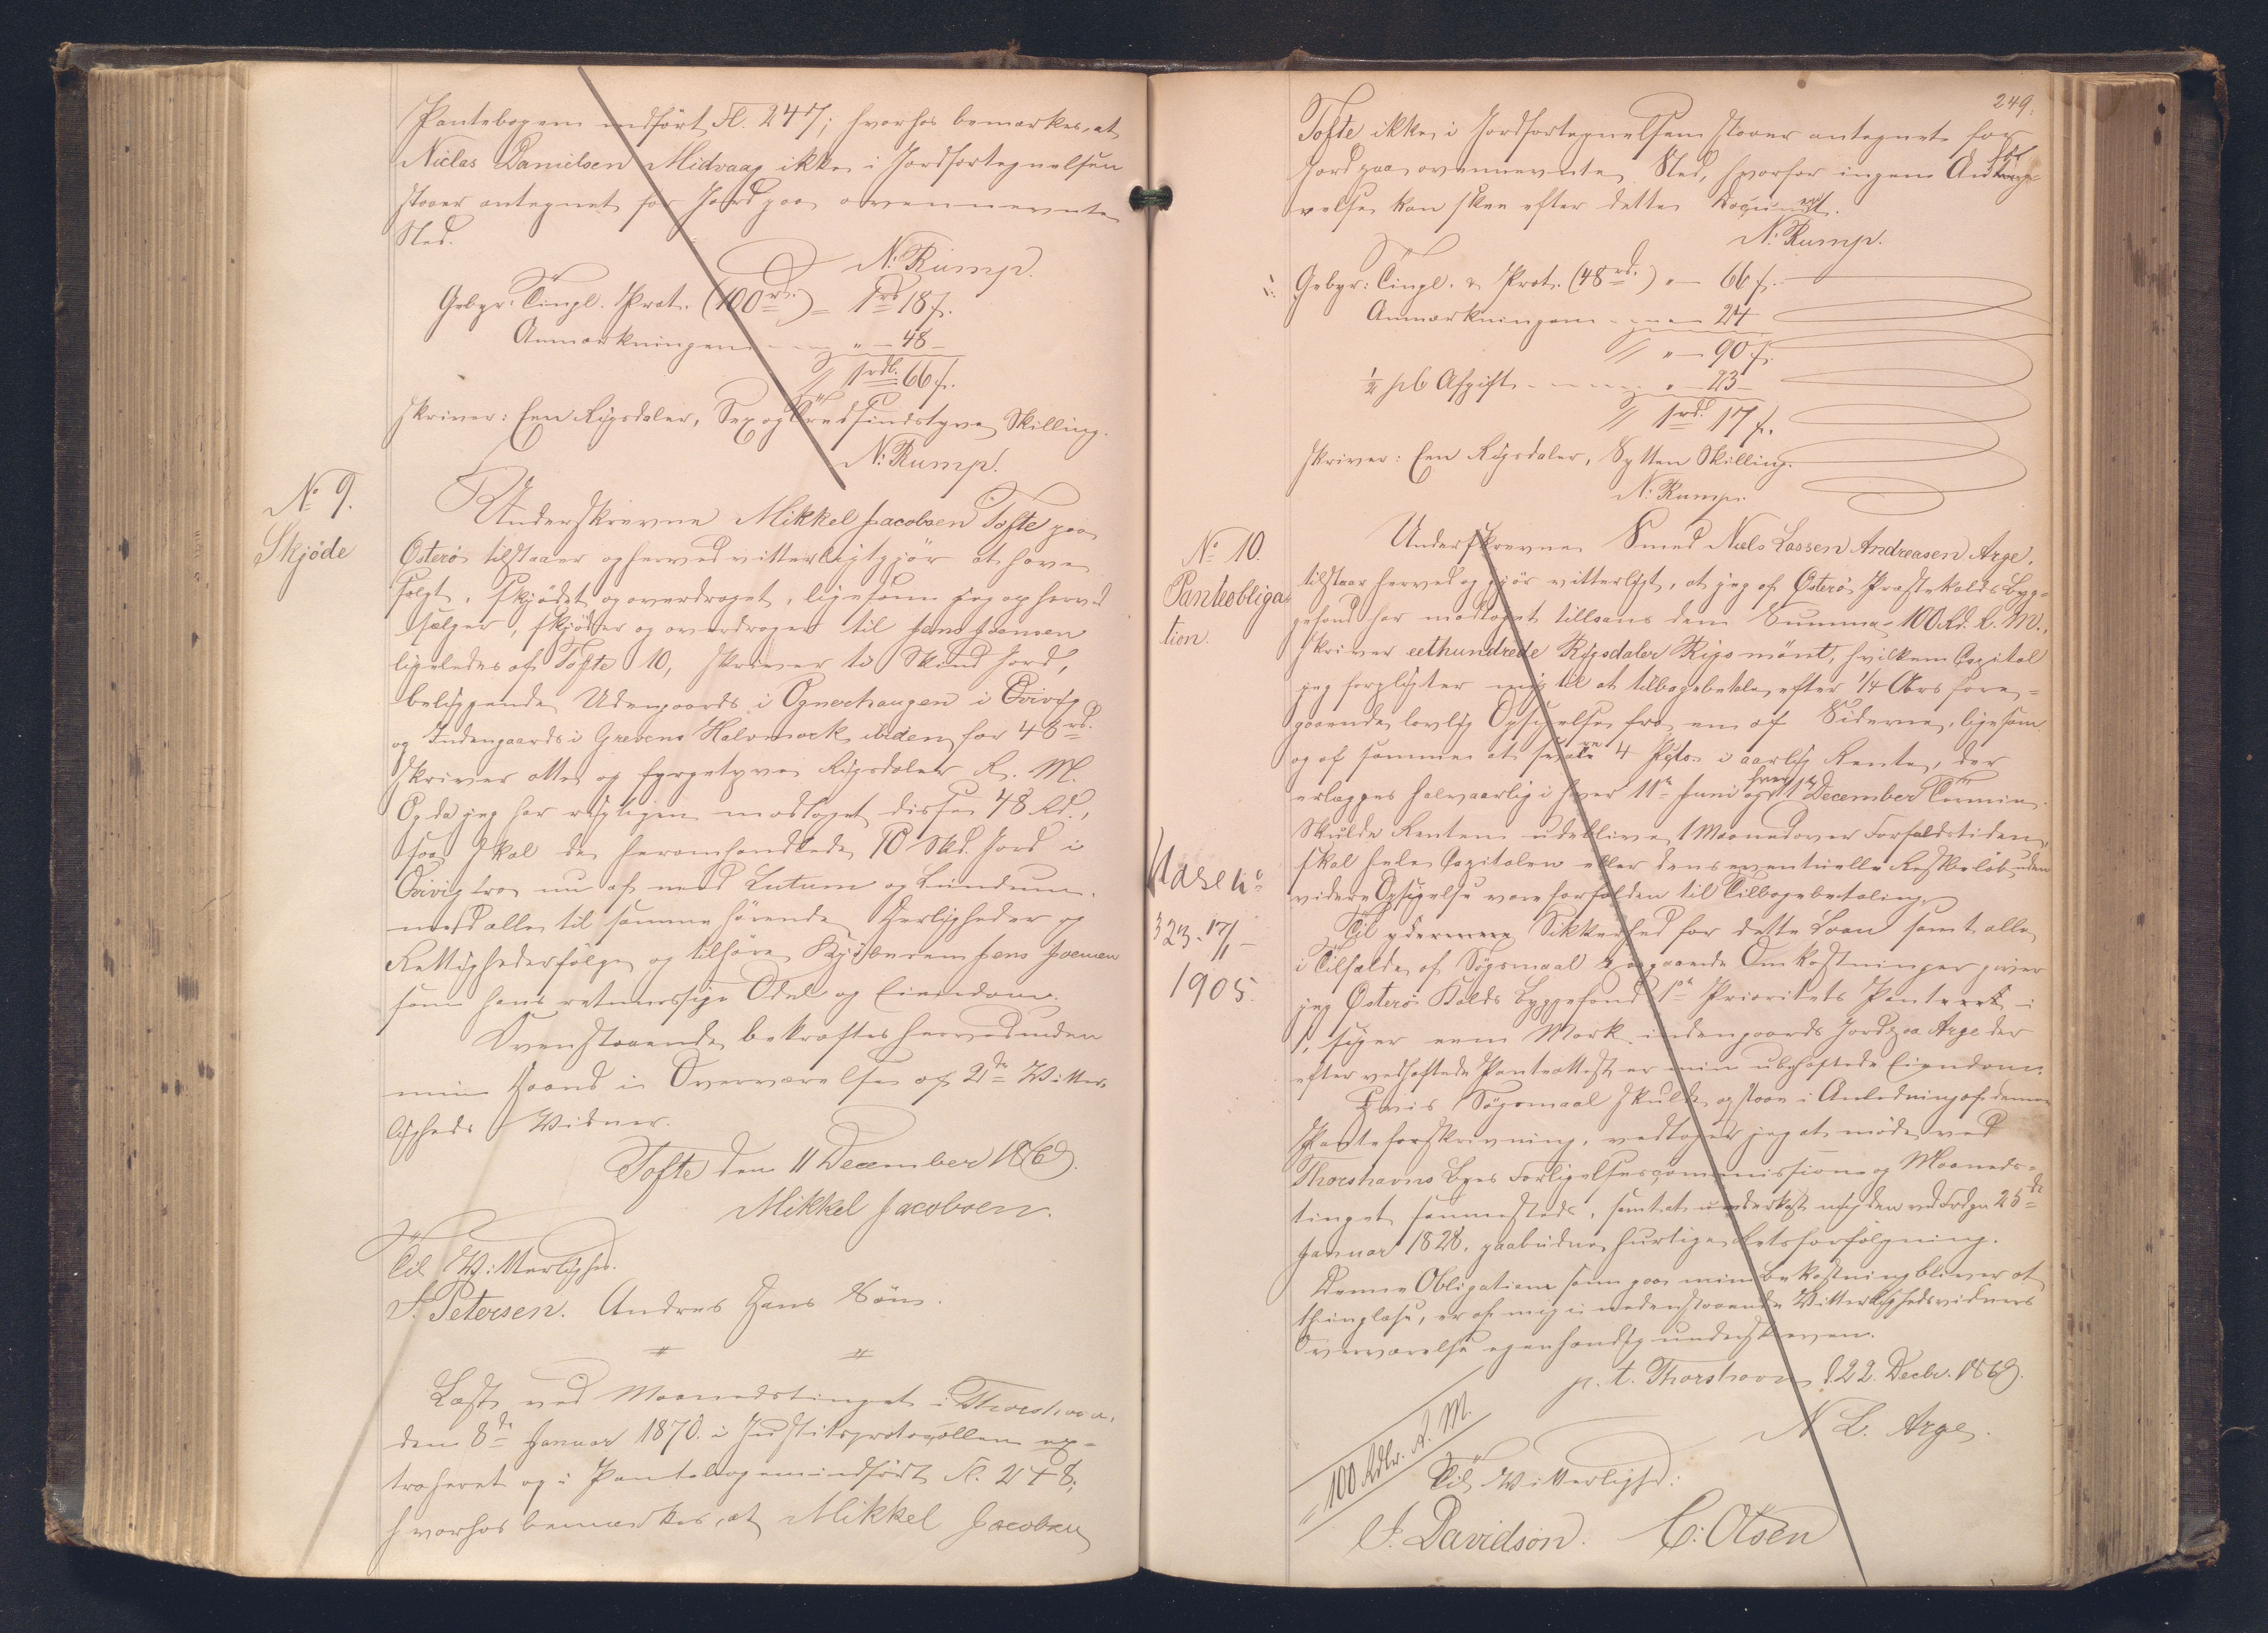 Pantebogen indført Fl. 247; hvorhos bemærkes, at
Niclas Danielsen Midvaag ikke i Jordfortegnelsen
staaer antegnet for Jord paa ovennævnte
Sted.
N. Rump.
Gebyr: Tingl. Prot. (100 rd.) = 1 rd 18 s.
Anmærkningen " — 48 —
// 1 rdl. 66 s.
skriver: Een Rigsdaler, Sex og Tredsindstyve Skilling.
N. Rump.
No 9.
Skjöde
Underskrevne Mikkel Jacobsen Tofte paa
Österö tilstaaer og herved vitterligtgjör at have
solgt, skjödet og overdraget, ligesom jeg og herved
sælger, skjöder og overdrager til Jens Joensen
ligeledes af Tofte 10, skriver ti Skind Jord,
beliggende Udengaards i Ognerhaugen i Qvivig
og Indengaards i Grevens Halvmark ibidem for 48 rd.
skriver otte og fyrgetyve Rigsdaler R. M.
Og da jeg har rigtigen modtaget disse 48 Rd.,
saa skal de heromhandlede 10 Skd. Jord i
Qvivig fra nu af med Lutum og Lundum
med alle til samme hörende Herligheder og
Rettigheder fölge og tilhöre Kjöberen Jens Joensen
som hans retmæssige Odel og Eiendom.
Ovenstaaende bekræftes herved under
min Haand i Overværelse af 2de Vitter-
ligheds Vidner.
Tofte den 11 December 1869.
Mikkel Jacobsen.
Til Vitterlighed.
S. Petersen. Andreas Hans Sön.
Læst ved Maanedstinget i Thorshavn
den 8de Januar 1870. i Justitsprotocollen ex-
traheret og i Pantebogen indført Fl. 248;
hvorhos bemærkes, at Mikkel Jacobsen
249.
Tofte ikke i Jordfortegnelsen staaer antegnet for
Jord paa ovennævnte Sted, hvorfor ingen
kan skee efter dette Document.
N. Rump.
Gebyr: Tingl. & Prot. (48 rd.) " — 66 s.
Anmærkningen " — 24
// " — 90 s.
½ pC Afgift " — 23 —
// 1 rd. 17 s.
skriver: Een Rigsdaler, Sytten Skilling.
N. Rump.
No 10.
Pantobliga
tion.
Underskrevne Smed Niels Lassen Andreasen Arge,
tilstaar herved og gjör vitterligt, at jeg af Österö Præstekalds Byg-
gefond har modtaget tillaans den Summa 100 Rd. R. M.,
skriver eethundrede Rigsdaler Rigsmönt, hvilken Capital
jeg forpligter mig til at tilbagebetale efter 1/4 Aars fore-
gaaende lovlig Opsigelse fra en af Siderne, ligesom
og af samme at svare 4 Pcto. i aarlig Rente, der
erlægges halvaarlig i hver 11te Juni og hver 11te December Termin.
Skulde Renten udeblive 1 Maaned over Forfaldstiden,
skal hele Capitalen eller dens eventuelle Restbeløb uden
videre Opsigelse være forfalden til Tilbagebetaling.
Til ydermere Sikkerhed for dette Laan samt alle
i Tilfælde af Søgsmaal paagaaende Omkostninger giver
jeg Österö Kalds Byggefond 1ste Prioritets Panteret i
1, siger een Mark indengaards Jord paa Arge der
efter vedhæftede Panteattest er min ubehæftede Eiendom.
Hvis Søgsmaal skulde opstaae i Anledning af denne
Panteforskrivning, vedtager jeg at möde ved
Thorshavns Byes Forligelsescommission og Maaneds-
tinget sammesteds, samt at underkaste mig den ved Frdgn 25de
Januar 1828. paabudne hurtige Retsforfölgning.
Denne Obligation som paa min Bekostning bliver at
thinglæse, er af mig i nedenstaaende Vitterlighedsvidners
Overværelse egenhændig underskreven.
p. t. Thorshavn d. 22. Decbr. 1869.
N L. Arge.
= 100 Rdlr. R. M.
Til Vitterlighed:
J. Davidson. C: Olsen
323. 17/11 —
1905.